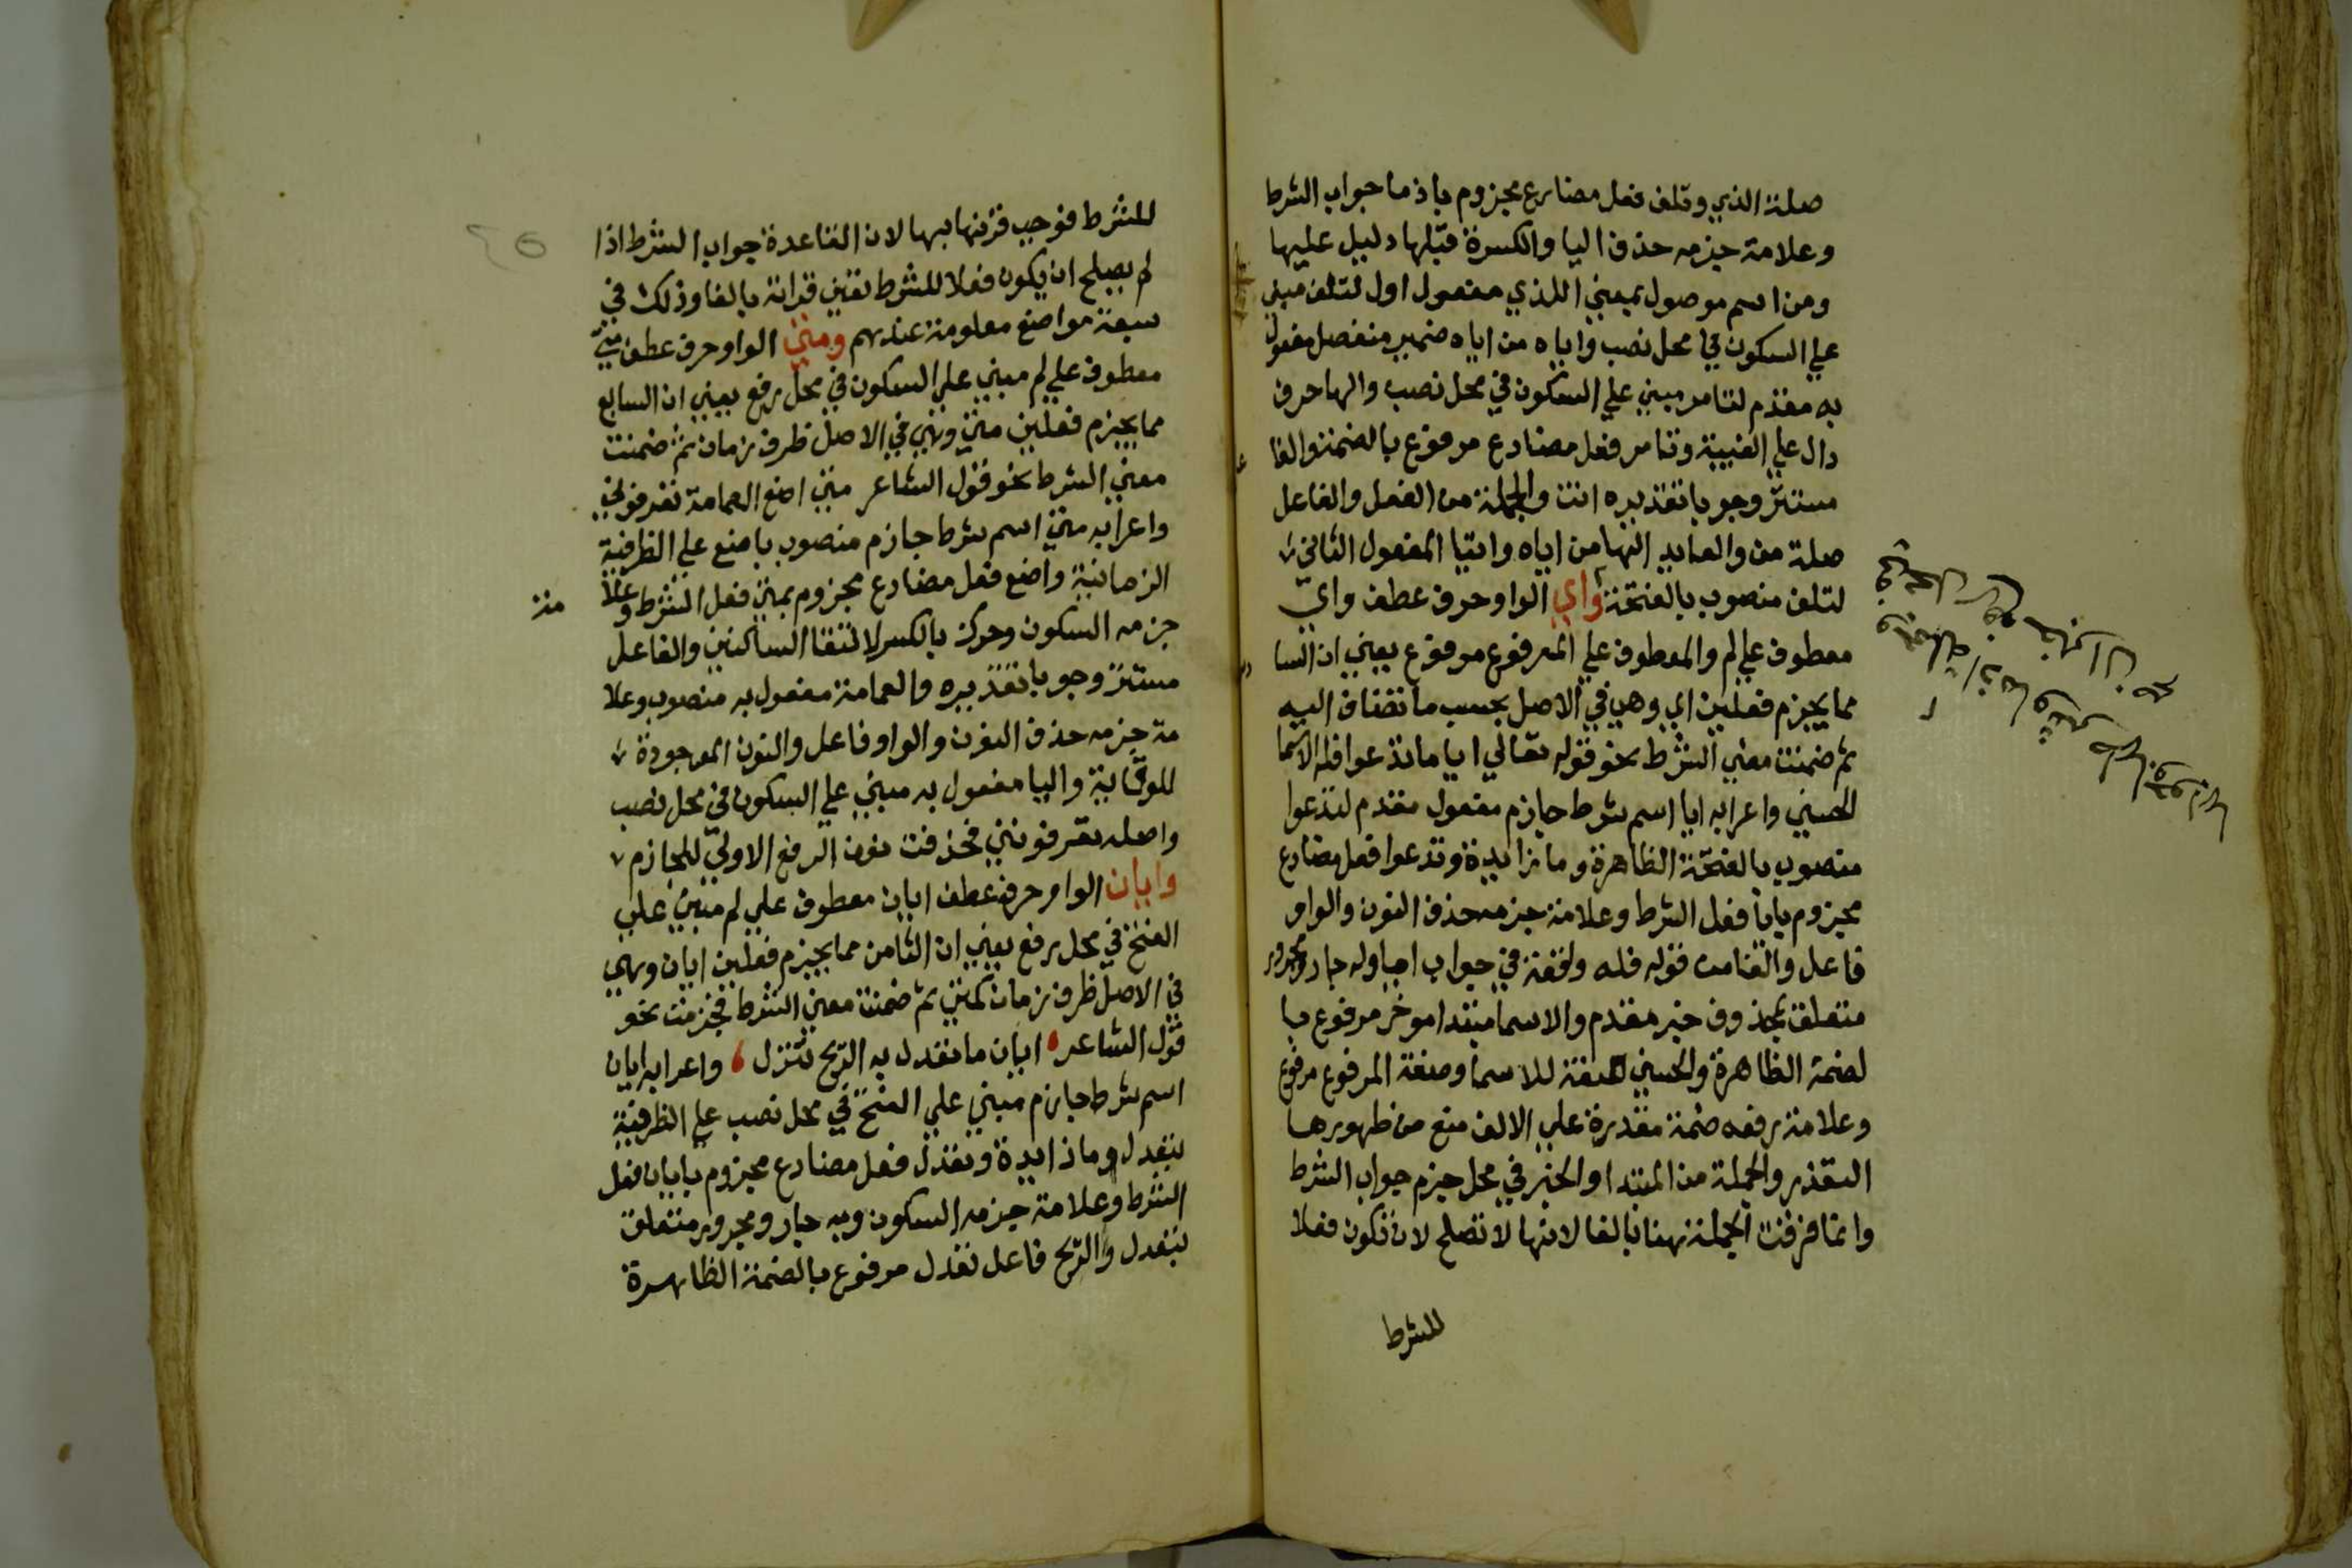 صلة الذي وتلف فعل مضارع مجزوم باذما جواب الشرط
وعلامة جزمه حذف اليا والكسرة قبلها دليل عليها
ومن اسم موصول بمعني اللذي مفعول اول لتلف مبني
علي السكون في محل نصب واياه من اياه ضمير منفصل مفعول
به مقدم لتامر مبني علي السكون في محل نصب والها حرف
دال علي الغيبة وتامر فعل مضارع مرفوع بالضمة والفا
عل
مستتر وجوبا تقديره انت والجملة من الفعل والفاعل
صلة من والعايد الها من اياه واتيا المفعول الثاني
لتلف منصوب بالفتحة واي الواو حرف عطف واي
معطوف علي لم والمعطوف علي المرفوع مرفوع يعني ان السا
دس
مما يجزم فعلين اي وهي في الاصل بحسب ما تضاف اليه
ثم ضمنت معني الشرط نحو قوله تعالي ايا ما تدعوا فله الاسما
الحسني واعرابه ايا اسم شرط جازم مفعول مقدم لتدعوا
منصوب بالفتحة الظاهرة وما زايدة وتدعوا فعل مضارع
مجزوم بايا فعل الشرط وعلامة جزمه حذف النون والواو
فاعل والفا من قوله فله واقعة في جواب ايا وله جار ومجرور
متعلق بمحذوف خبر مقدم والاسما مبتدا موخر مرفوع با
لضمة الظاهرة والحسني صفة للاسما وصفة المرفوع مرفوع
وعلامة رفعه ضمة مقدرة علي الالف منع من ظهورها
التعذر والجملة من المبتدا والخبر في محل جزم جواب الشرط
وانما قرنت الجملة هنا بالفا لانها لا تصلح لان تكون فعلا
للشرط
للشرط فوجب قرنها بها لان القاعدة جواب الشرط اذا
لم يصلح ان يكون فعلا للشرط تعين قرانه بالفا وذلك في
سبعة مواضع معلومة عندهم ومتي الواو حرف عطف متي
معطوف علي لم مبني علي السكون في محل رفع يعني ان السابع
مما يجزم فعلين متي وهي في الاصل ظرف زمان ثم ضمنت
معني الشرط نحو قول الشاعر متي اضع العمامة تعرفوني
واعرابه متي اسم شرط جازم منصوب باضع علي الظرفية
الزمانية واضع فعل مضارع مجزوم بمتي فعل الشرط وعلا
مة
جزمه السكون وحرك بالكسر لالتقا الساكنين والفاعل
مستتر وجوبا تقديره والعمامة مفعول به منصوب وعلا
مة جزمه حذف النون والواو فاعل والنون الموجودة
للوقاية واليا مفعول به مبني علي السكون في محل نصب
واصله تعرفونني فحذفت نون الرفع الاولي للجازم
وايان الواو حرف عطف ايان معطوف علي لم مبني علي
الفتح في محل رفع يعني ان الثامن مما يجزم فعلين ايان وهي
في الاصل ظرف زمان كمتي ثم ضمنت معني الشرط فجزمت نحو
قول الشاعر ايان ما تعدل به الريح تنزل واعرابه ايان
اسم شرط جازم مبني علي الفتح في محل نصب علي الظرفية
بتعدل وما زايدة وتعدل فعل مضارع مجزوم بايان فعل
الشرط وعلامة جزمه السكون وبه جار ومجرور متعلق
بتعدل والريح فاعل تعدل مرفوع بالضمة الظاهرة